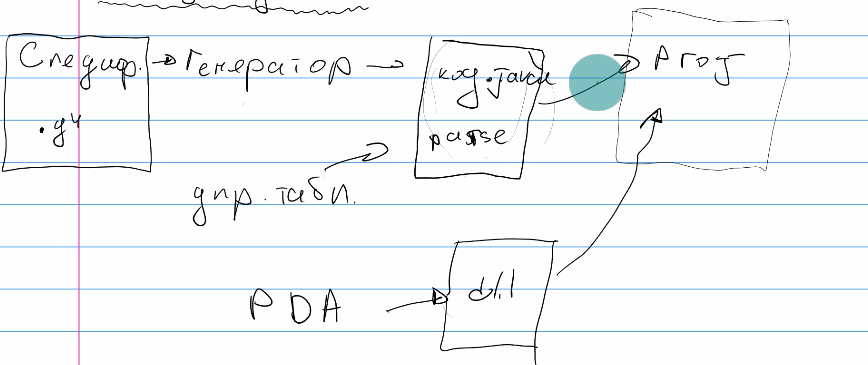 Специф. → Генератор →
.g4
код.java
parse
Proj
упр. табл.
PDA
dll